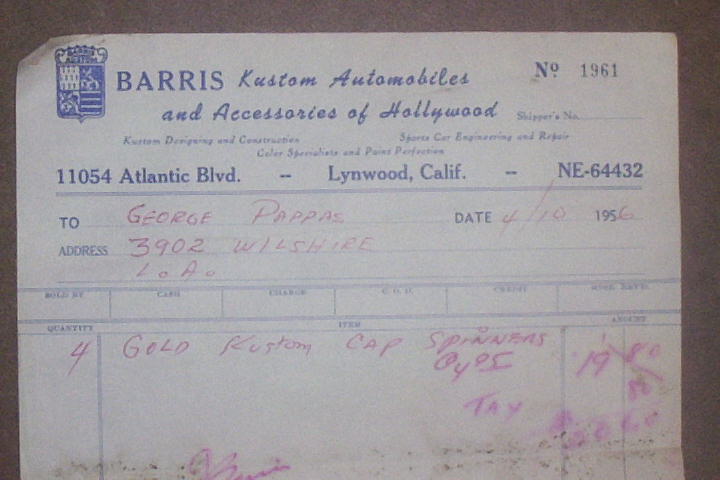 BARRIS KUSTOM
BARRIS Kustom Automobiles
Nº 1961
and Accessories of Hollywood
Shipper's No.
Kustom Designing and Construction Sports Car Engineering and Repair
Color Specialists and Paint Perfection
11054 Atlantic Blvd. -- Lynwood, Calif. -- NE-64432
TO GEORGE PAPPAS DATE 4/10 1956
ADDRESS 3902 WILSHIRE
L.A.
SOLD BY CASH CHARGE C.O.D. CREDIT MDSE. RET'D.
QUANTITY ITEM AMOUNT
4 GOLD Kustom CAP SPINNERS 19 80
TAX